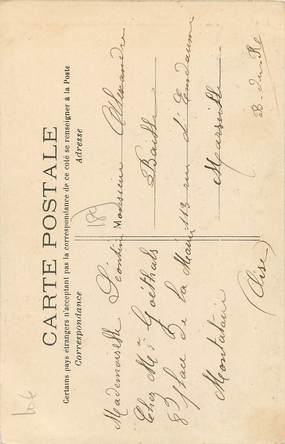 CARTE POSTALE
Certains pays étrangers n'acceptant pas la correspondance de ce côté se renseigner à la Poste
Correspondance
Adresse
Mademoiselle Léontine
Chez Mr Goëthals
8 place de la Mairie
Montataire
(Oise)
Monsieur Alexandre
Baille
113 rue d'Endoume
Marseille
B-du-R
189